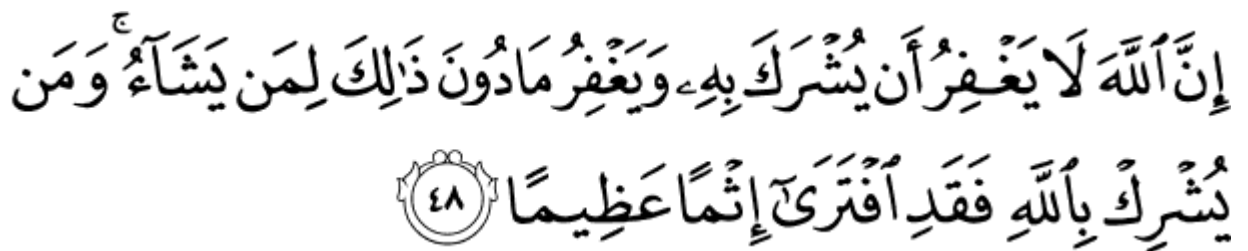 إِنَّ ٱللَّهَ لَا يَغْفِرُ أَن يُشْرَكَ بِهِۦ وَيَغْفِرُ مَا دُونَ ذَٰلِكَ لِمَن يَشَآءُ ۚ وَمَن
يُشْرِكْ بِٱللَّهِ فَقَدِ ٱفْتَرَىٰٓ إِثْمًا عَظِيمًا ٤٨